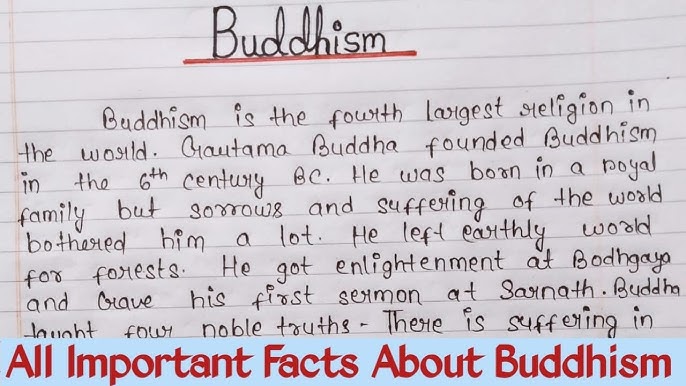 Buddhism
Buddhism is the fourth largest religion in
the world. Gautama Buddha founded Buddhism
in the 6th century BC. He was born in a royal
family but sorrows and suffering of the world
bothered him a lot. He left earthly world
for forests. He got enlightenment at Bodhgaya
and Gave his first sermon at Sarnath. Buddha
taught four noble truths - There is suffering in
All Important Facts About Buddhism